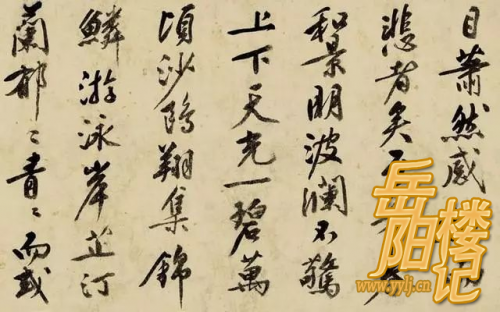 目蕭然感
悲者矣至春
和景明波瀾不驚
上下天光一碧萬
頃沙鷗翔集錦
鱗游泳岸芷汀
蘭郁〻青〻而或
岳阳楼记
www.yylj.cn